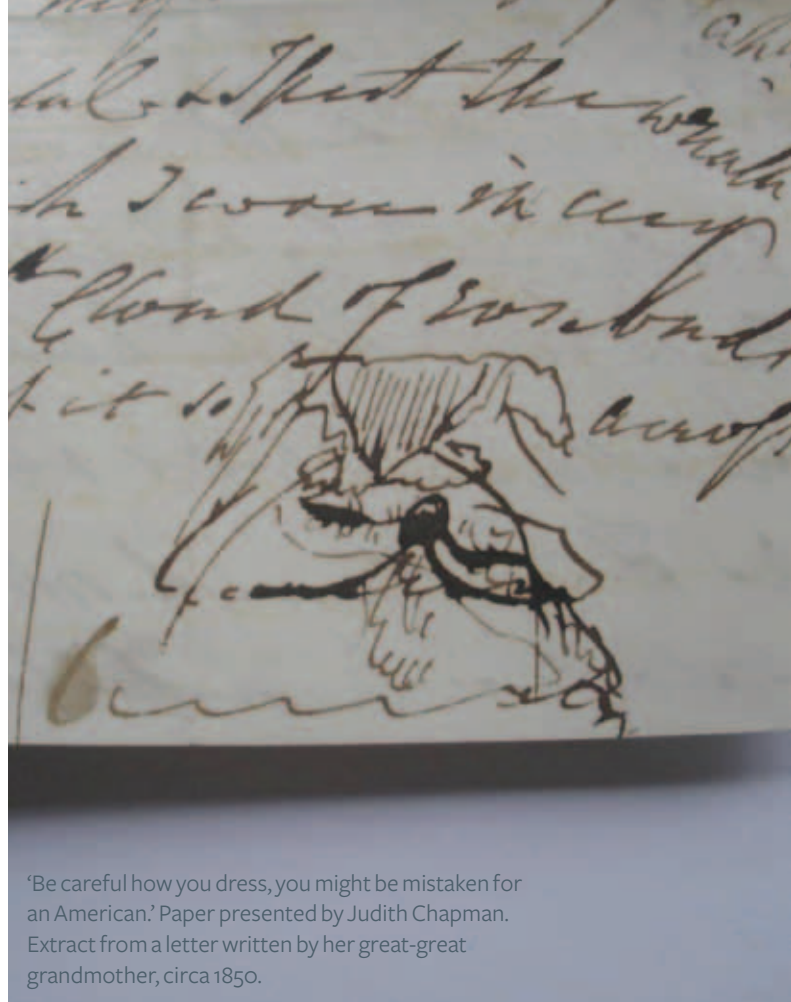 & that the wreath
I wore in my
Cloud of rosebuds
it so across
‘Be careful how you dress, you might be mistaken for
an American.’ Paper presented by Judith Chapman.
Extract from a letter written by her great-great
grandmother, circa 1850.